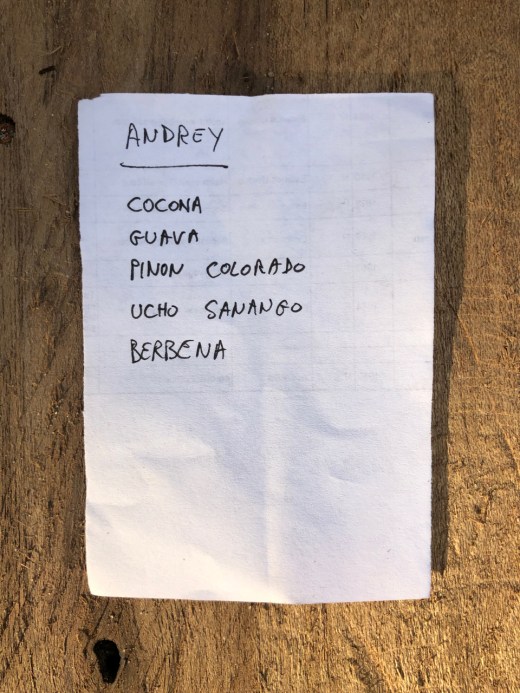 ANDREY
COCONA
GUAVA
PINON COLORADO
UCHO SANANGO
BERBENA